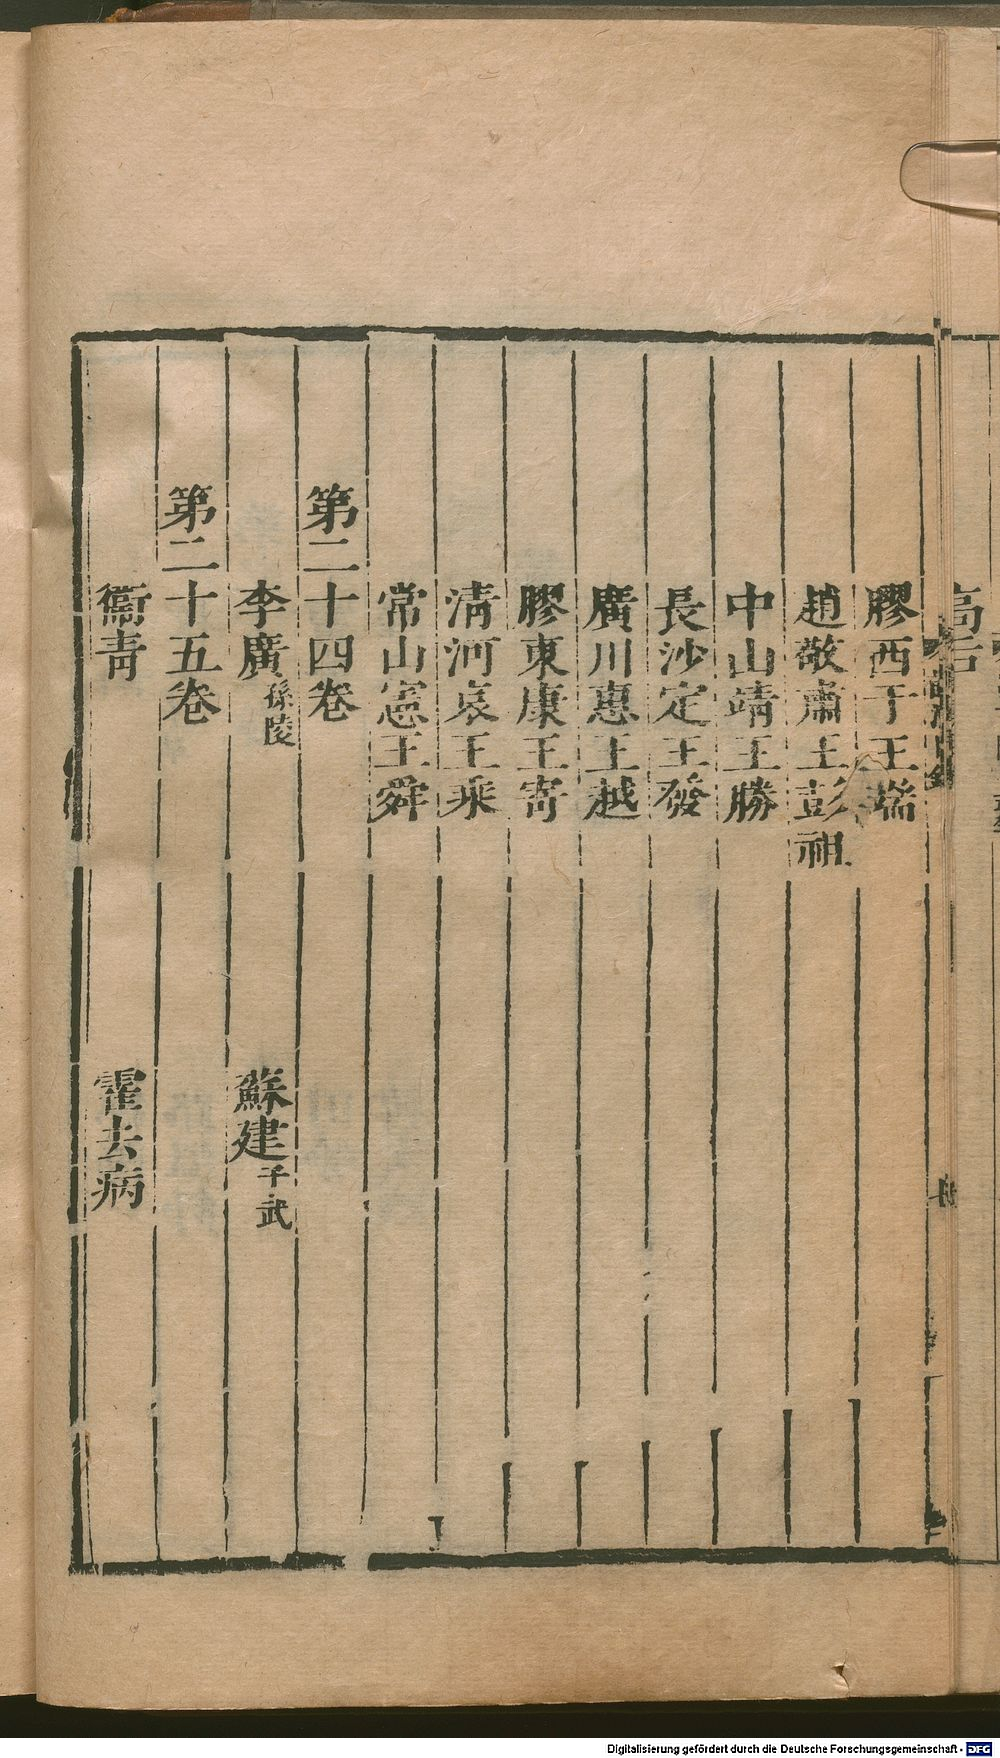 膠西于王端
趙敬肅王彭祖
中山靖王勝
長沙定王發
廣川惠王越
膠東康王寄
清河哀王乘
常山憲王舜
第二十四卷
李廣孫陵 蘇建子武
第二十五卷
衞青 霍去病
Digitalisierung gefördert durch die Deutsche Forschungsgemeinschaft - DFG